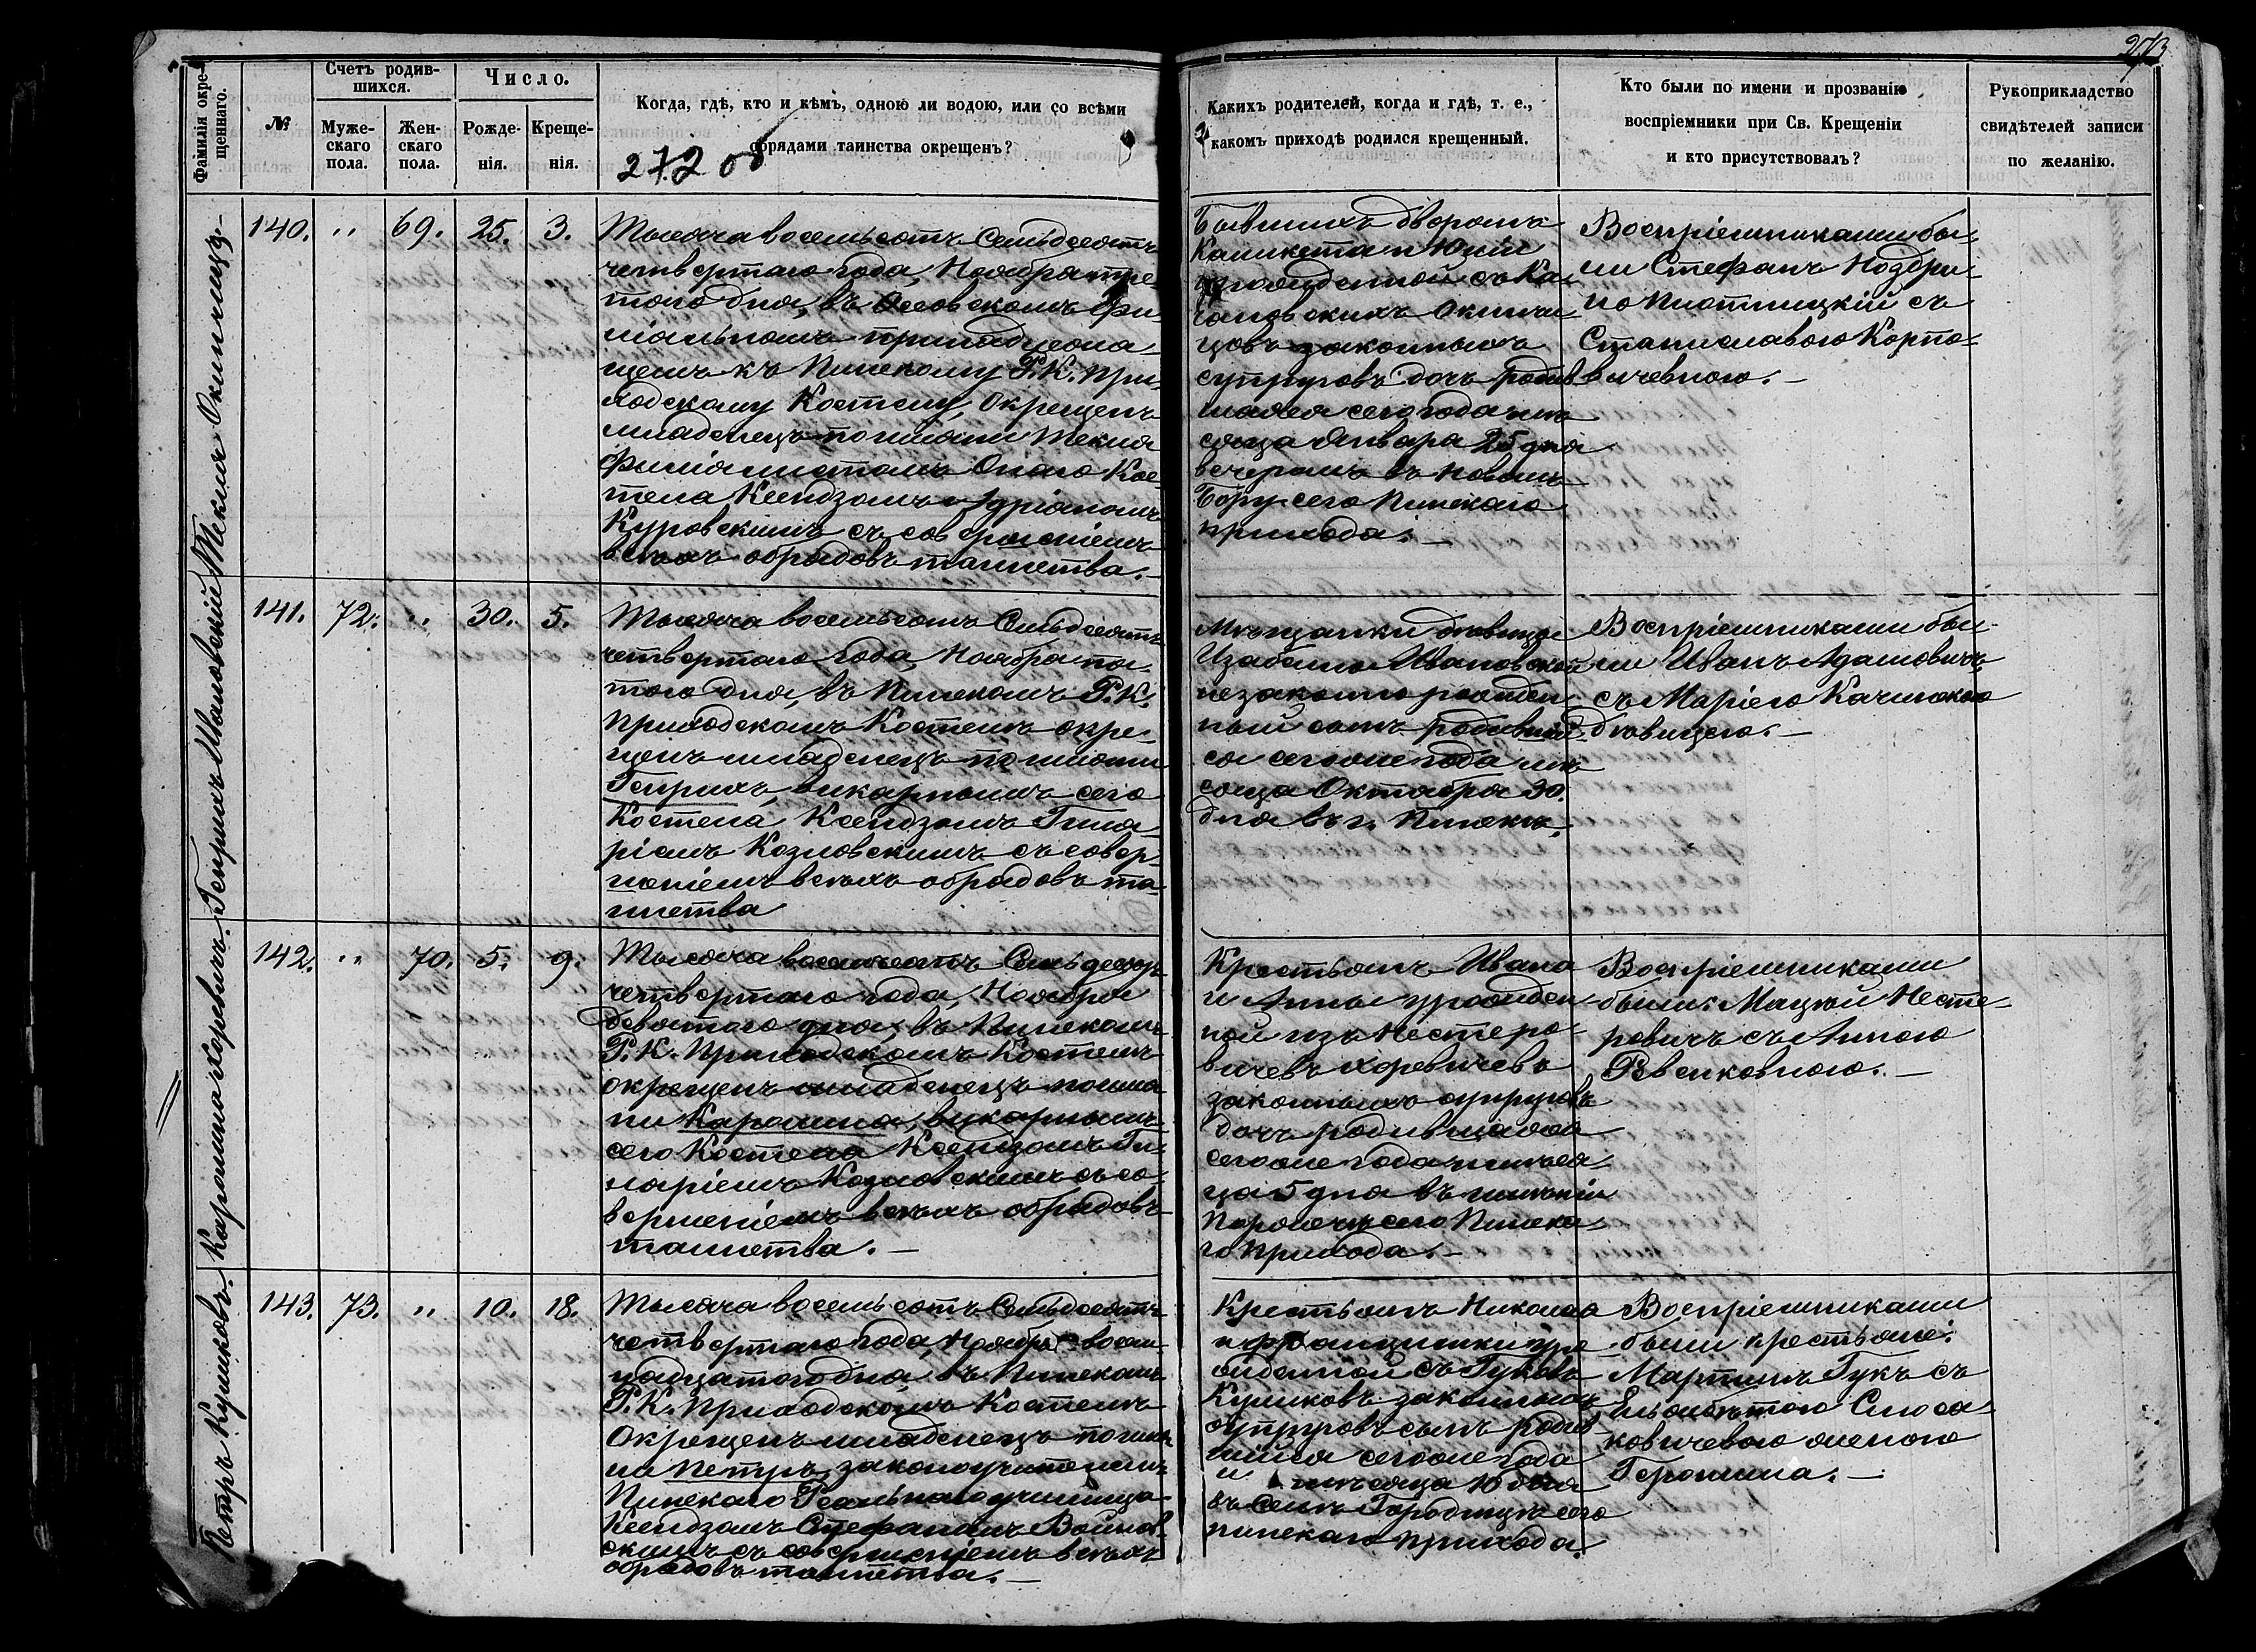 273
Фамилія окре-
щеннаго.
№
Счетъ родив-
шихся.
Муже-
скаго
пола.
Жен-
скаго
пола.
Число.
Рожде-
нія.
Креще-
нія.
Когда, гдѣ, кто и кѣмъ, одною ли водою, или со всѣми
обрядами таинства окрещенъ?
272 об
Какихъ родителей, когда и гдѣ, т. е.,
какомъ приходѣ родился крещенный.
Кто были по имени и прозванію
воспріемники при Св. Крещеніи
и кто присутствовалъ?
Рукоприкладство
свидѣтелей записи
по желанію.
Текля Окинчицъ.
140. " 69. 25. 3.
Тысяча восемьсотъ Семьдесятъ
четвертаго года, Ноября тре-
тьяго дня, въ Осовскомъ Фи-
ліальномъ принадлежа-
щемъ къ Пинскому Р.К. При-
ходскому Костелу, Окрещенъ
младенецъ по имени Текля
Филіалистомъ Онаго Кос-
тела Ксендзомъ Адріаномъ
Куровскимъ съ совершеніемъ
всѣхъ обрядовъ таинства.
Бывшихъ дворянъ
Каликста и Юліи
урожденной съ Ка-
Окинчи-
цовъ законныхъ
супруговъ дочь родив-
шаяся сего года мѣ-
сяца Января 25 дня
вечеромъ въ Новомъ
Бору сего Пинскаго
прихода.
Воспріемниками бы-
ли Стефанъ Ноздри-
но Піотницкій съ
Станиславою Корпо-
вичевною.
Генрихъ Ивановскій
141. 72. " 30. 5.
Тысяча восемьсотъ Семьдесятъ
четвертаго года, Ноября пя-
таго дня, въ Пинскомъ Р.К.
Приходскомъ Костелѣ окре-
щенъ младенецъ по имени
Генрихъ, викарнымъ сего
Костела Ксендзомъ Гила-
ріемъ Козловскимъ съ совер-
шеніемъ всѣхъ обрядовъ та-
инства
Мѣщанки дѣвицы
Изабелы Ивановской
незаконно рожден-
ный сынъ родивш
ся сегоже года мѣ-
сяца Октября 30.
дня въ г. Пинскѣ.
Воспріемниками бы-
ли Иванъ Адамовичъ
съ Маріею Качинскою
дѣвицею.
Каролина Хоревичъ.
142. " 70. 5. 9.
Тысяча восемьсотъ Семьдесятъ
четвертаго года, Ноября
девятаго дня, въ Пинскомъ
Р.К. Приходскомъ Костелѣ
окрещенъ младенецъ по име-
ни Каролина, викарнымъ
сего Костела Ксендзомъ Ги-
ларіемъ Козловскимъ съ со-
вершеніемъ всѣхъ обрядовъ
таинства.
Крестьянъ Ивана
и Анны урожден-
ной изъ Нестеро-
вичевъ Хоревичевъ
законныхъ супруговъ
дочь родившаяся
сегоже года и мѣся-
ца 5 дня въ имѣніи
сего Пинска-
го Прихода.
Воспріемниками
были: Мацѣй Несте-
ровичъ съ Анною
Ревенковною.
Петръ Куликовъ.
143. 73. " 10. 18.
Тысяча восемьсотъ Семьдесятъ
четвертаго года, Ноября восем-
надцатаго дня, въ Пинскомъ
Р.К. Приходскомъ Костелѣ
Окрещенъ младенецъ по име-
ни Петръ, законоучителемъ
Пинскаго Реальнаго училища
Ксендзомъ Стефаномъ Войнов-
скимъ съ совершеніемъ всѣхъ
обрядовъ таинства.
Крестьянъ Николая
и Францишки уро-
жденной съ Гуковъ
Куликовъ законныхъ
супруговъ сынъ родив-
шійся сегоже года
и мѣсяца 10 дня
въ Селѣ Городищѣ сего
пинскаго прихода.
Воспріемниками
были крестьяне:
Мартинъ Гукъ съ
Ельжбѣтою Слюса-
ковичевою женою
Геронима.